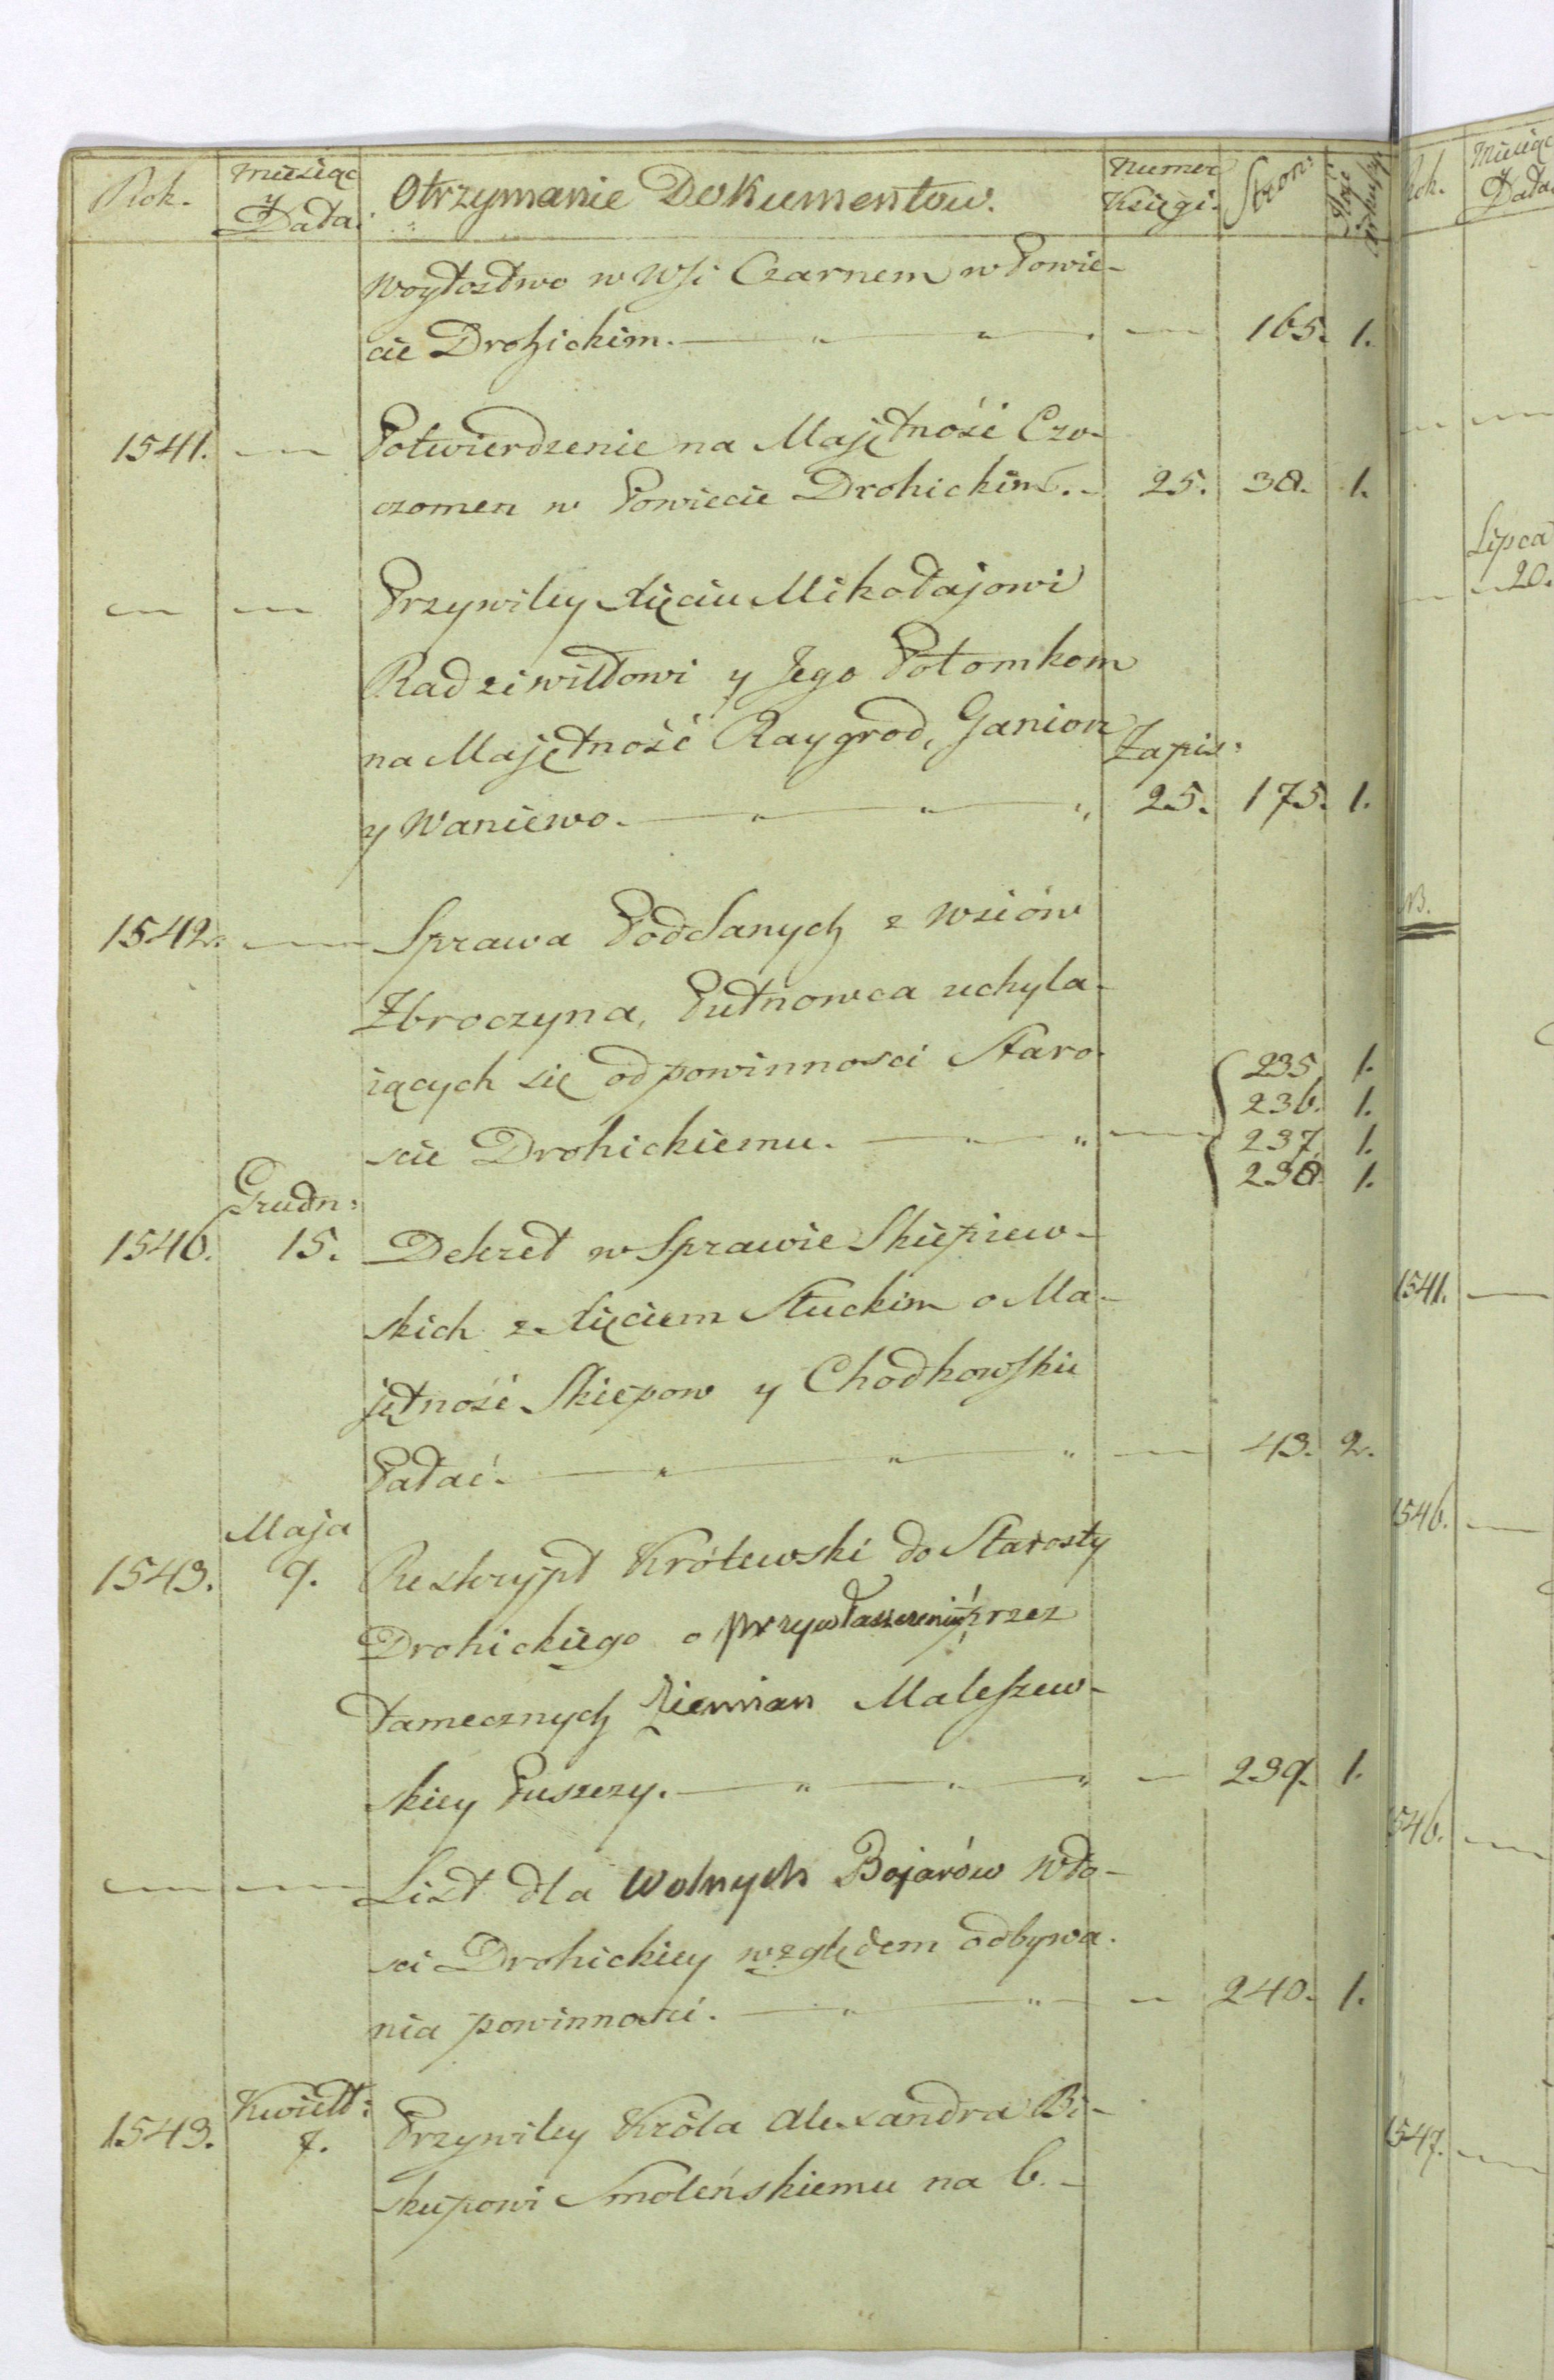 Rok. Miesiąc y Data. Otrzymanie Dokumentow. Numer Księgi. Stron: Ilość Arkuszy
Woytostwo w Wsi Czarnem w Powie-
cie Drohickim. — " — " — 165. 1.
1541. — Potwierdzenie na Majętność Czo-
czomen w Powiecie Drohickim. - 25. 38. 1.
— — Przywiley Xięciu Mikołajowi
Radziwiłłowi y Jego Potomkom
na Majętność Raygrod, Ganion Zapis:
y Waniewo. — " — " — " 25. 175. 1.
1542. — Sprawa Poddanych z wsiów
Zbroczyna, Putnowca uchyla-
iących się od powinnosci Staro- 235. 1.
236. 1.
scie Drohickiemu. — " — " — 237. 1.
238. 1.
Grudn:
1546. 15. Dekret w Sprawie Skiepiew-
skich z Xięciem Słuckim o Ma-
jętność Skiepow y Chodkowskie
Pałać. — " — " — " — 43. 2.
Maja
1543. 9. Reskrypt Królewski do Starosty
Drohickiego o przywłaszczeniu przez
tamecznych Ziemian Maleszew-
skiey Puszczy. — " — " — " — 239. 1.
— — List dla Wolnych Bojarów Wło-
sci Drohickiey względem odbywa-
nia powinnosci. — " — " — 240. 1.
Kwiet:
1543. 7. Przywiley Króla Alexandra Bi-
skupowi Smoleńskiemu na 6. -
Rok. Miesiąc y Data
Lipca
20.
NB.
1541. —
1546. —
1546. —
1547. —